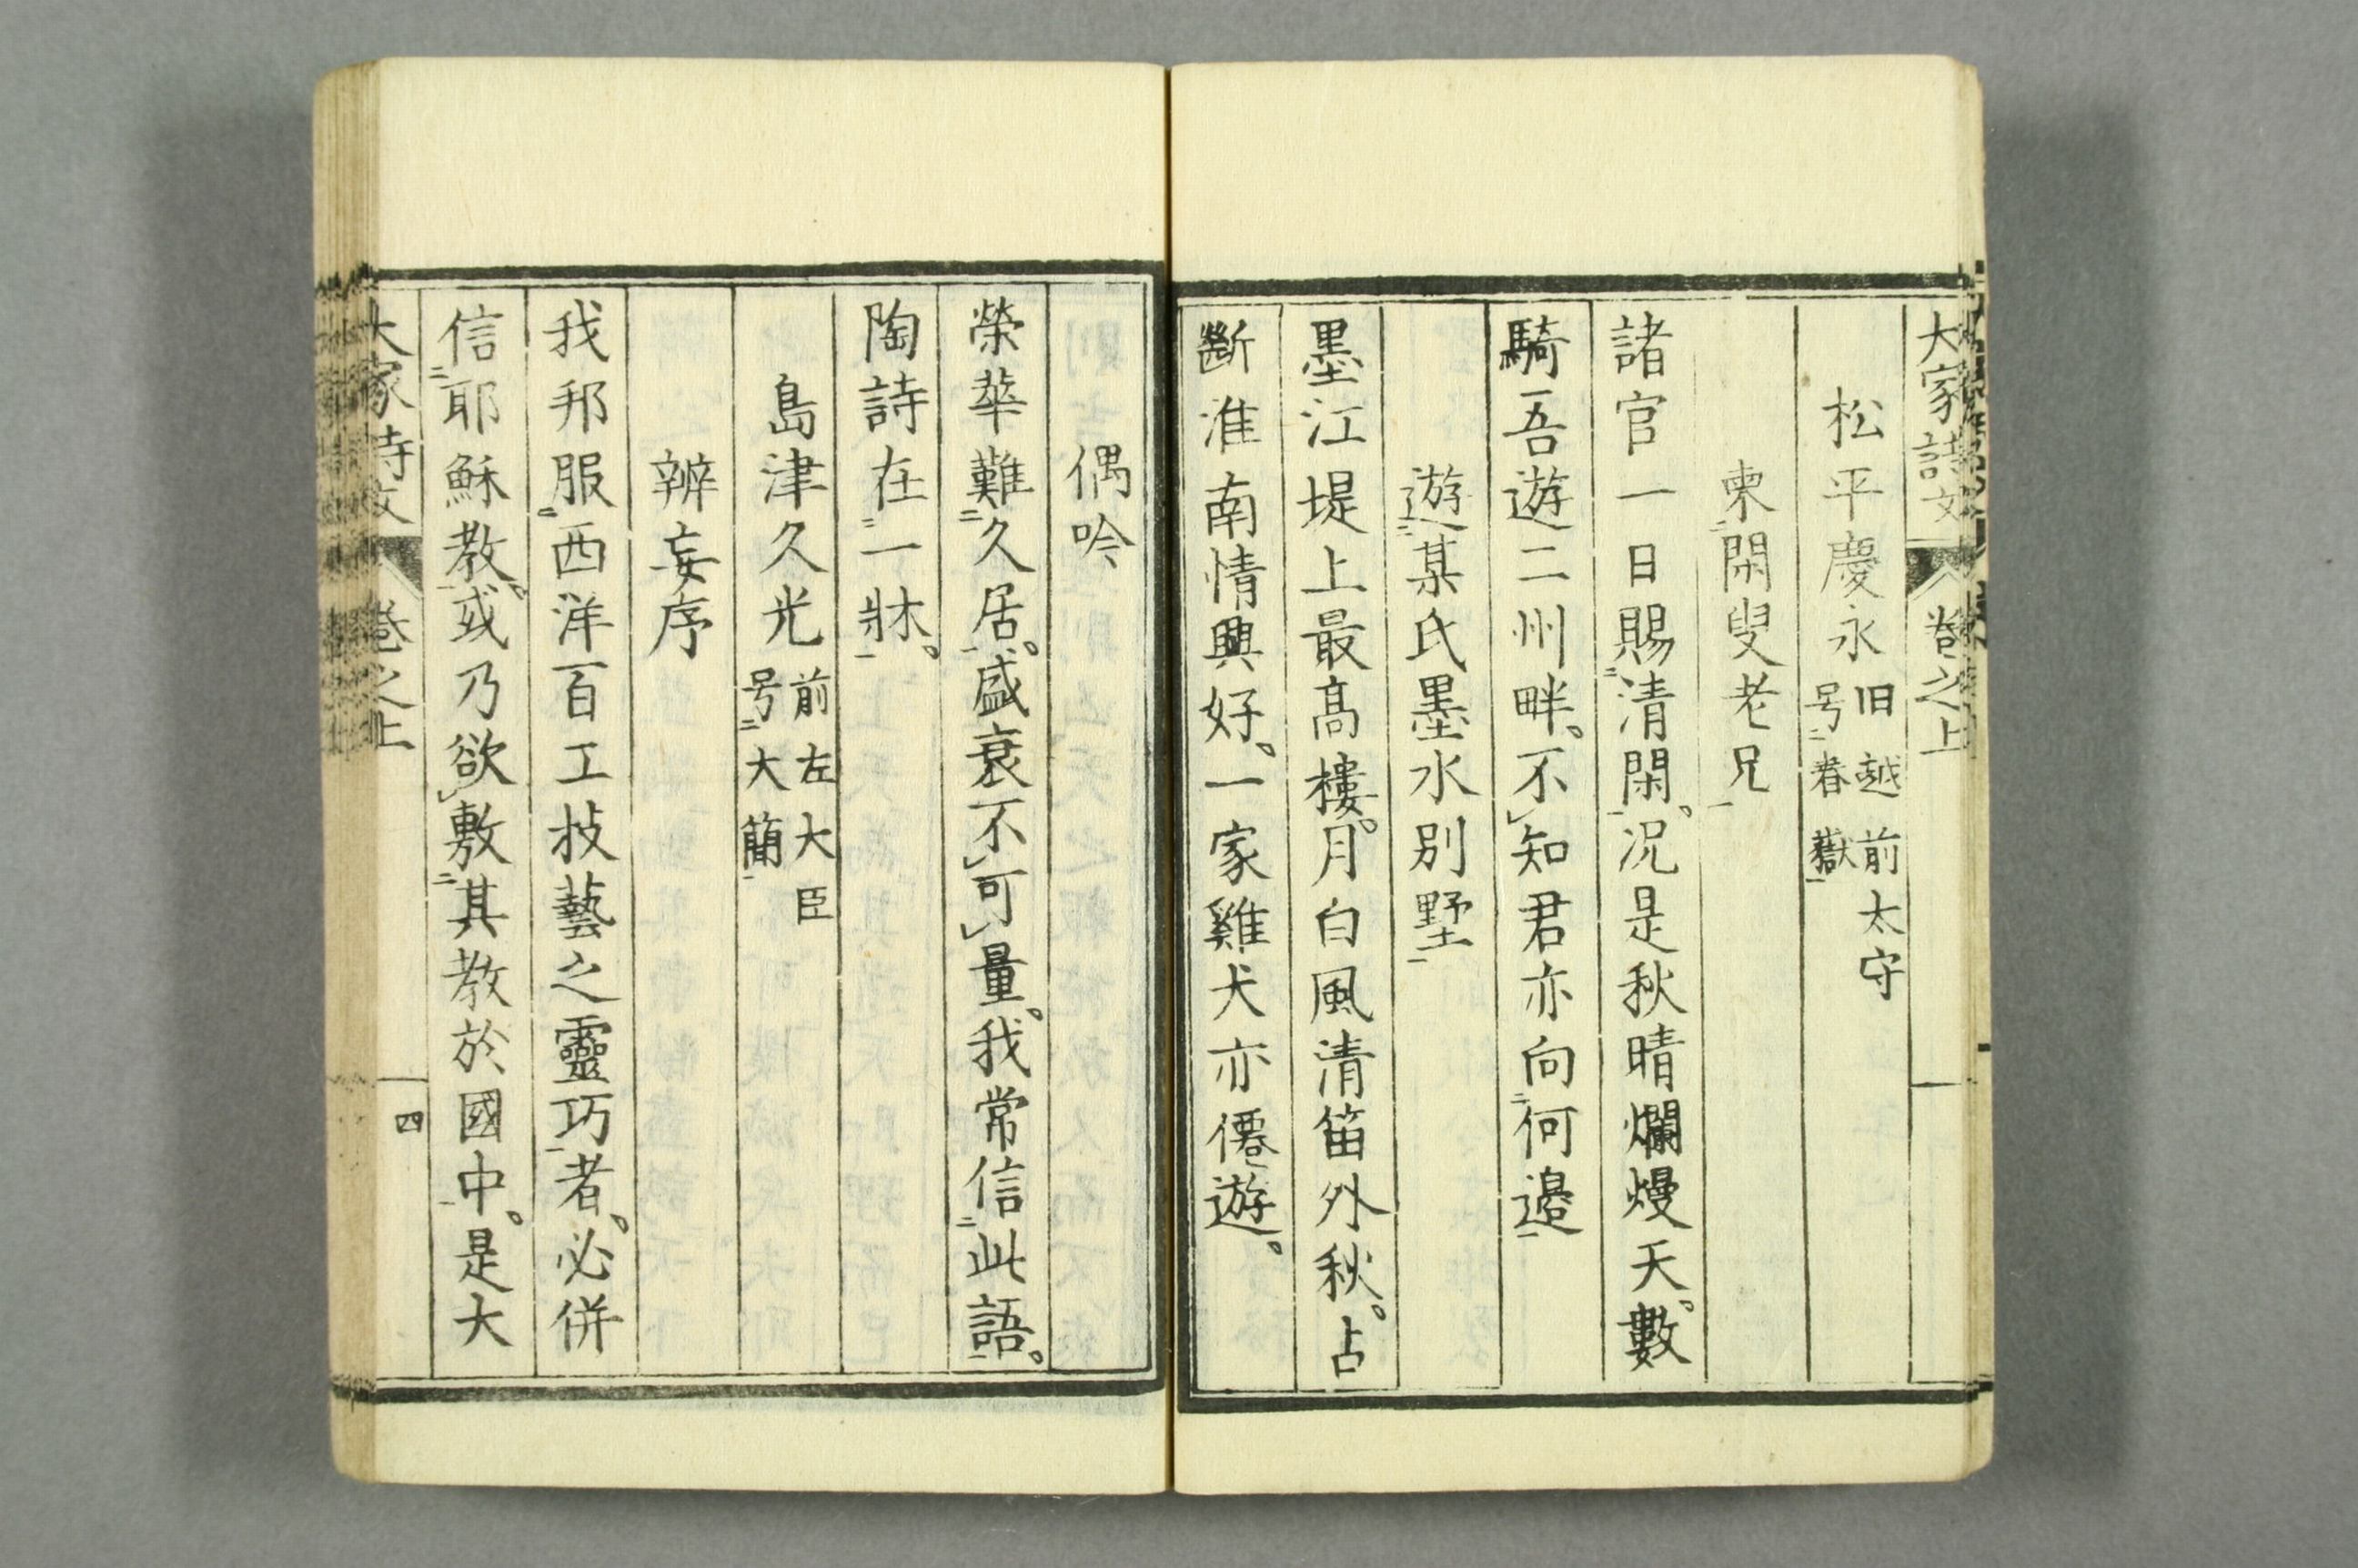 大家詩文 巻之上
松平慶永 旧越前太守 号春嶽
柬閑叟老兄
諸官一日賜清閑。况是秋晴爛熳天。數
騎吾遊二州畔。不知君亦向何邉
遊某氏墨水別墅
墨江堤上最髙樓。月白風清笛外秋。占
斷淮南情興好。一家雞犬亦僊遊。
偶吟
榮華難久居。盛衰不可量。我常信此語。
陶詩在一牀。
島津久光 前左大臣 号大簡
辨妄序
我邦服西洋百工技藝之靈巧者。必併
信耶穌教。或乃欲敷其教於國中。是大
大家詩文 巻之上 四